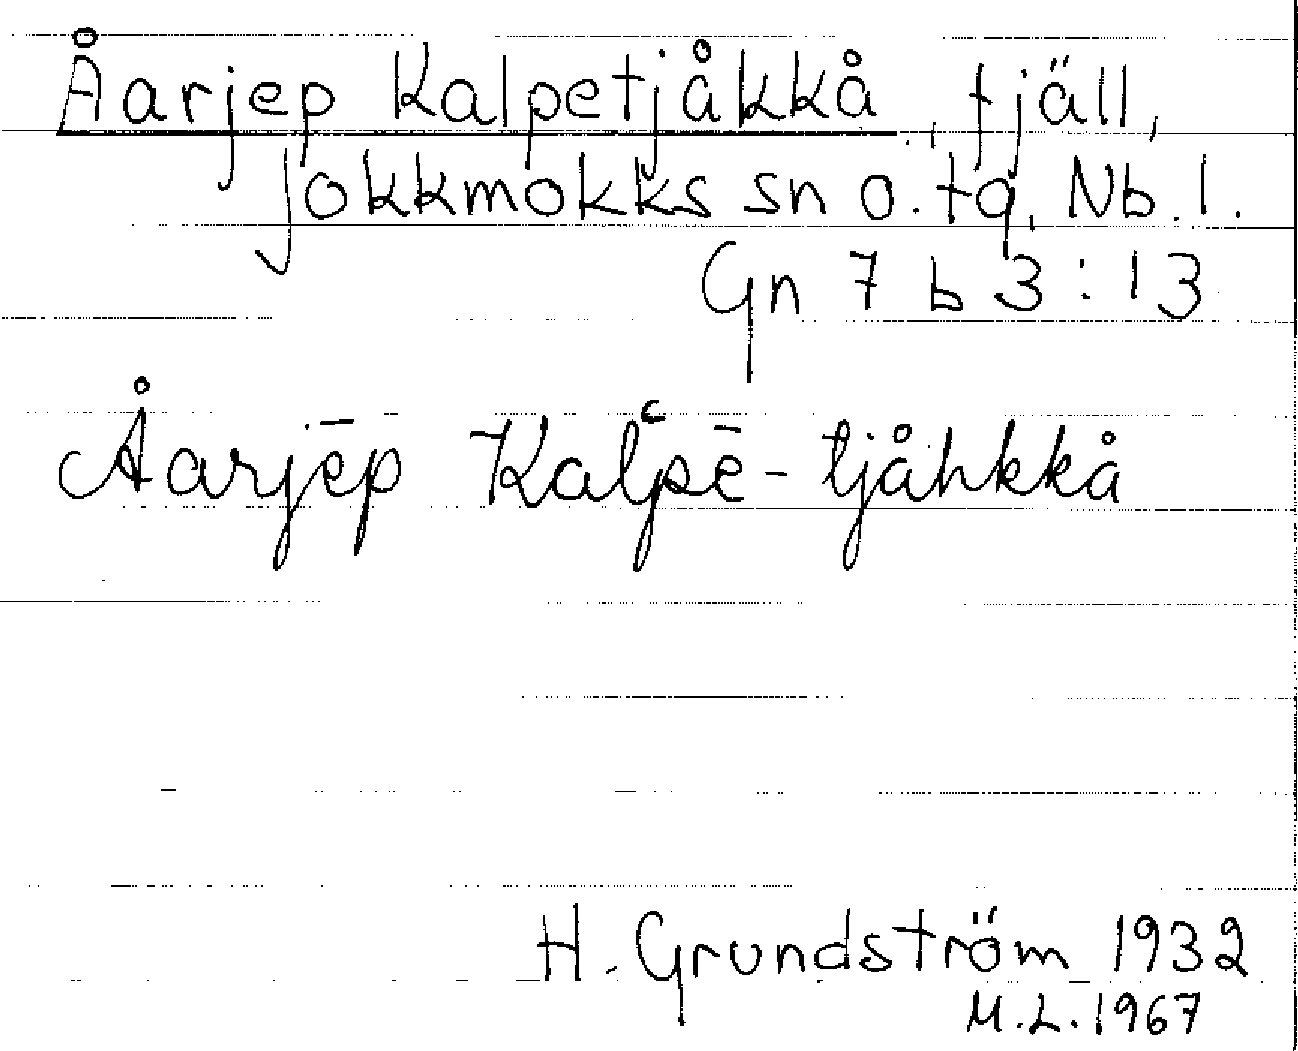 Åarjep Kalpetjåkkå, fjäll,
Jokkmokks sn o. tg, Nb. l.
Gn 7 b 3:13
Åarjēp Kalʿpē-tjåhkkå
H. Grundström 1932
M.L. 1967